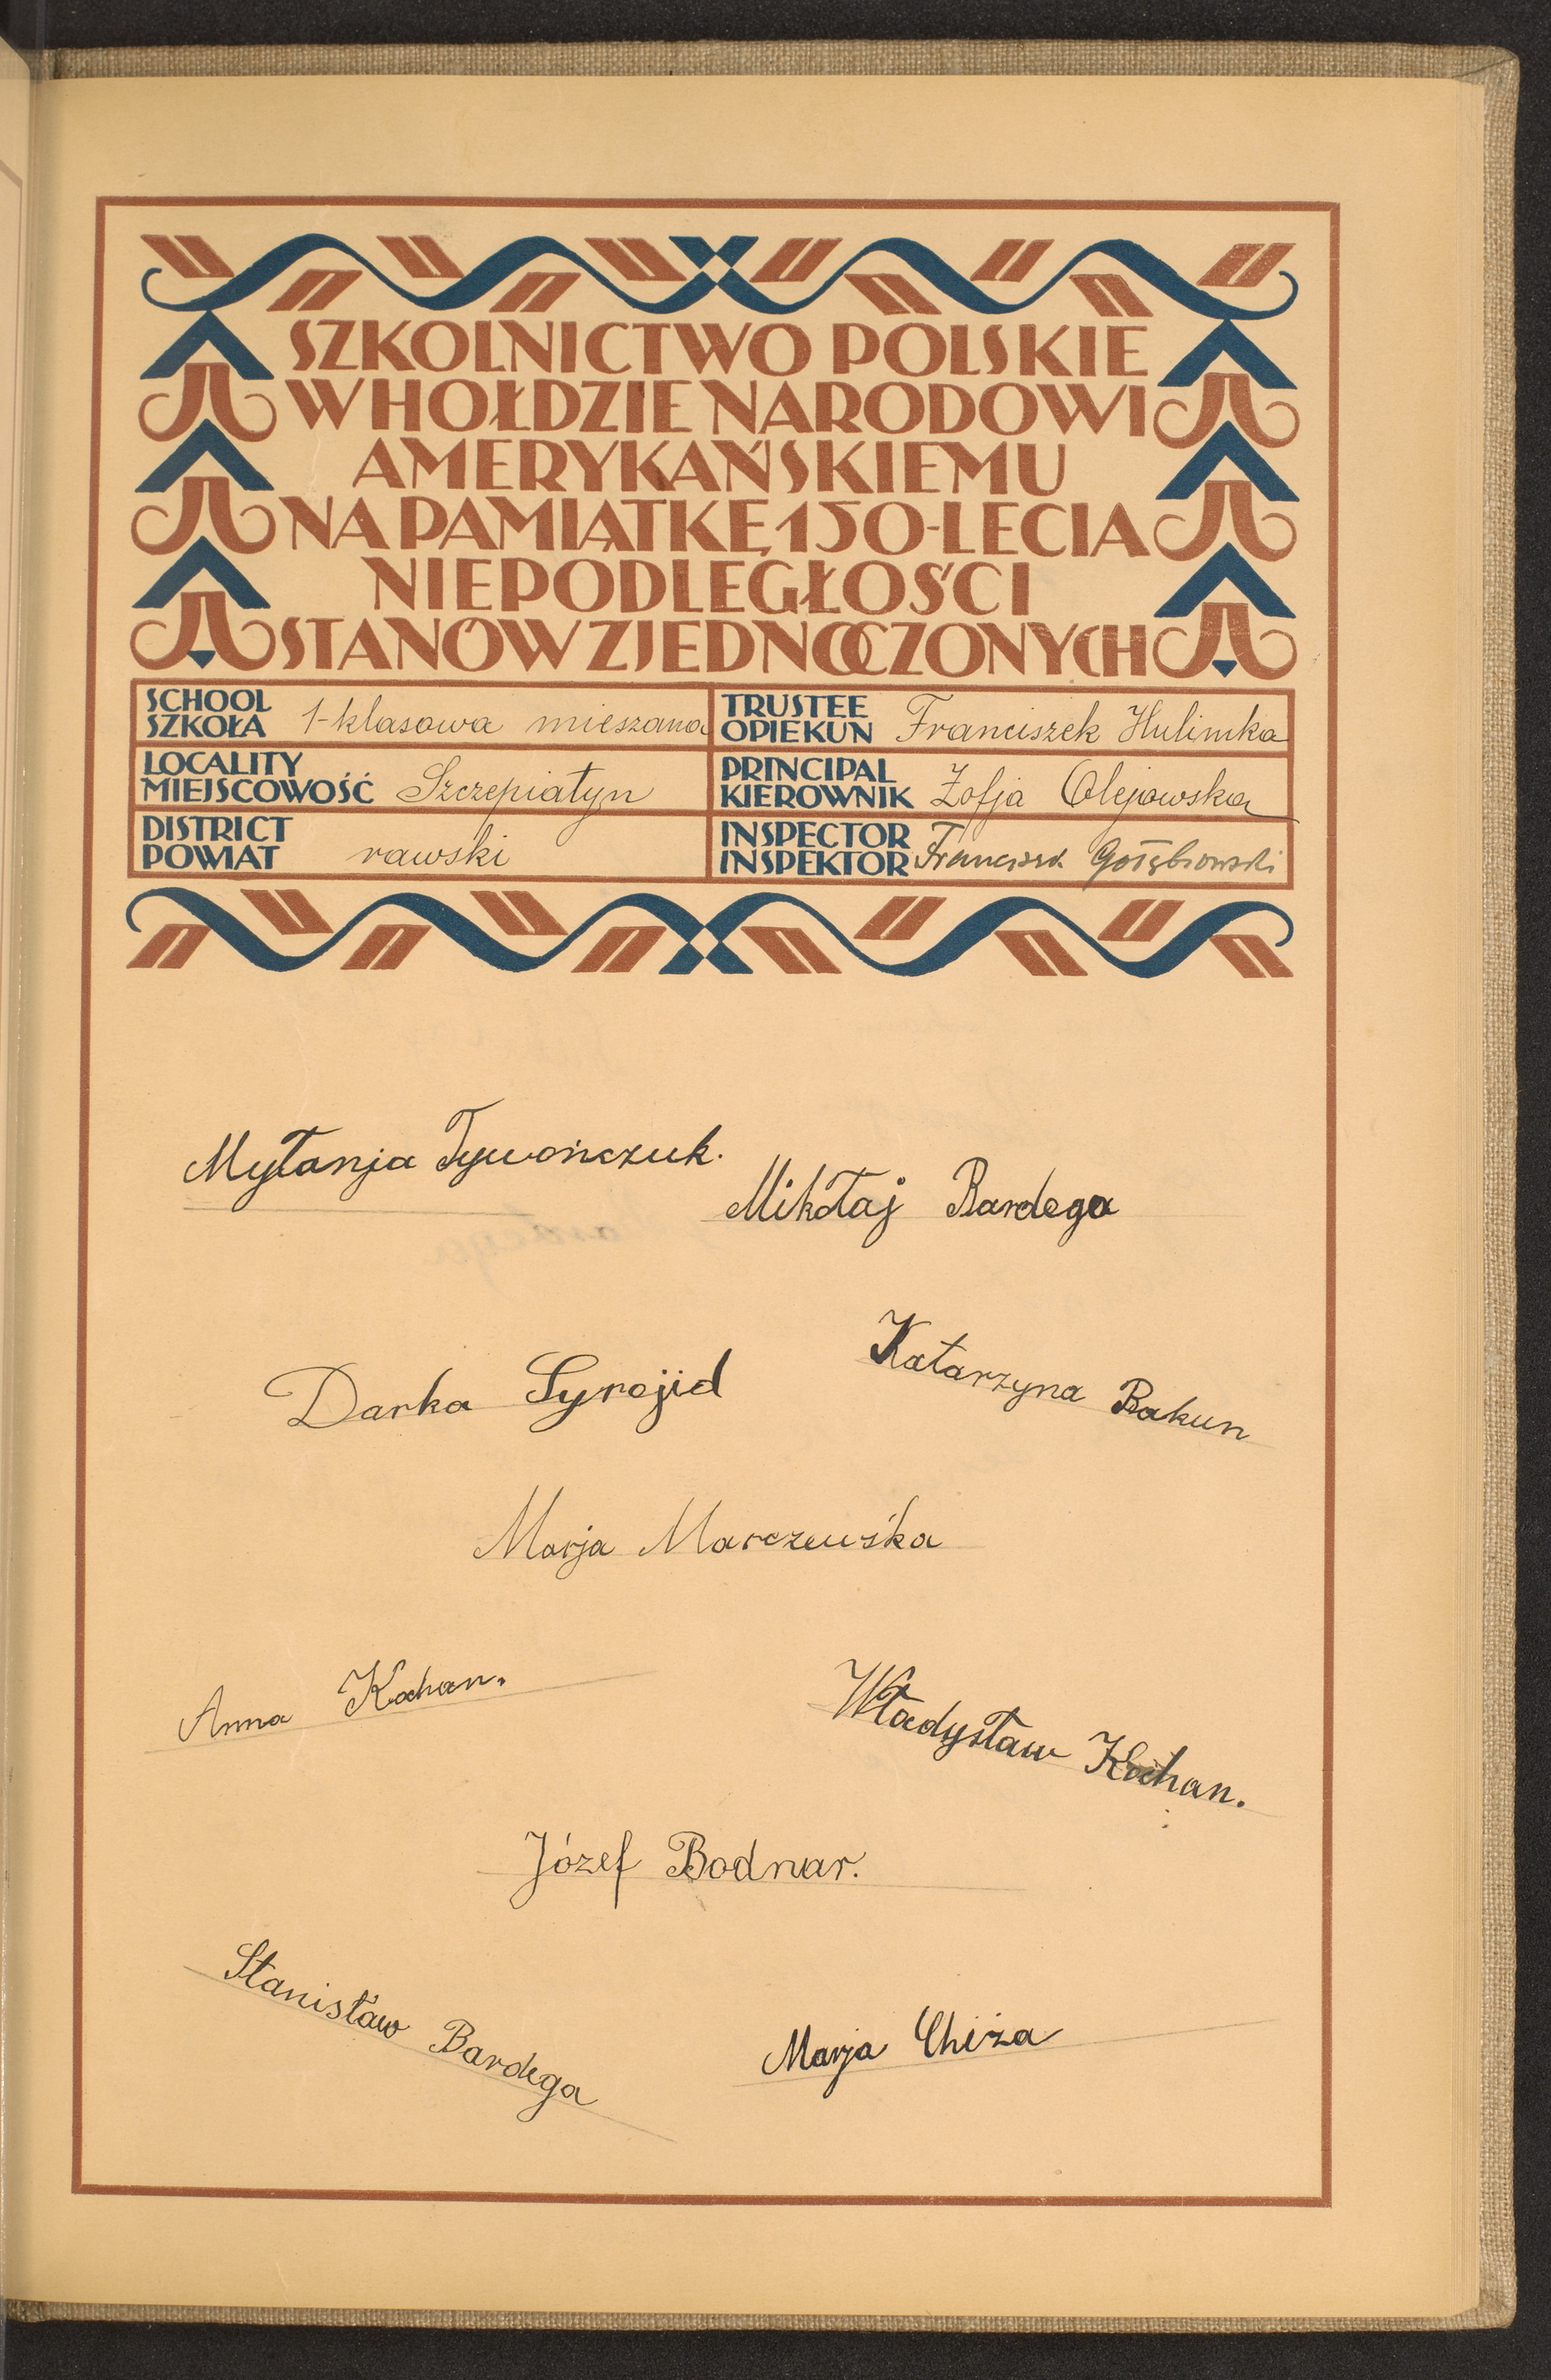 SZKOLNICTWO POLSKIE
W HOŁDZIE NARODOWI
AMERYKAŃSKIEMU
NA PAMIĄTKĘ 150-LECIA
NIEPODLEGŁOŚCI
STANÓW ZJEDNOCZONYCH
SCHOOL
SZKOŁA 1-klasowa mieszana
TRUSTEE
OPIEKUN Franciszek Hulimka
LOCALITY
MIEJSCOWOŚĆ Szczepiatyn
PRINCIPAL
KIEROWNIK Zofja Olejowska
DISTRICT
POWIAT rawski
INSPECTOR
INSPEKTOR Franciszek Gołębiowski
Mytanja Tywończuk.
Mikołaj Bardega
Darka Syrojid
Katarzyna Bakun
Marja Marczewśka
Anna Kochan.
Władysław Kochan.
Józef Bodnar.
Stanisław Bardega
Marja Chiża